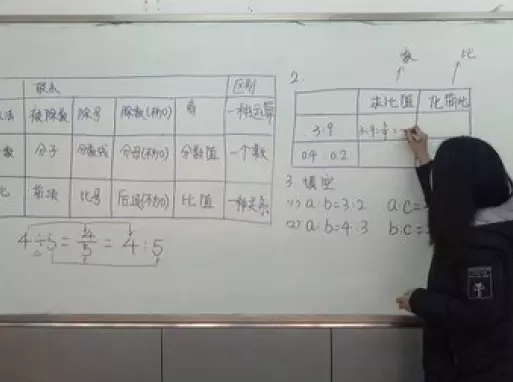 联系 区别
法 被除数 除号 除数(不为0) 商 一种运算
数 分子 分数线 分母(不为0) 分数值 一个数
比 前项 比号 后项(不为0) 比值 一种关系
4÷5=4/5=4:5
2.
数 比
求比值 化简比
3:9
0.4 0.2
3. 填空
(1) a:b=3:2 a:c=
(2) a:b=4:3 b:c=